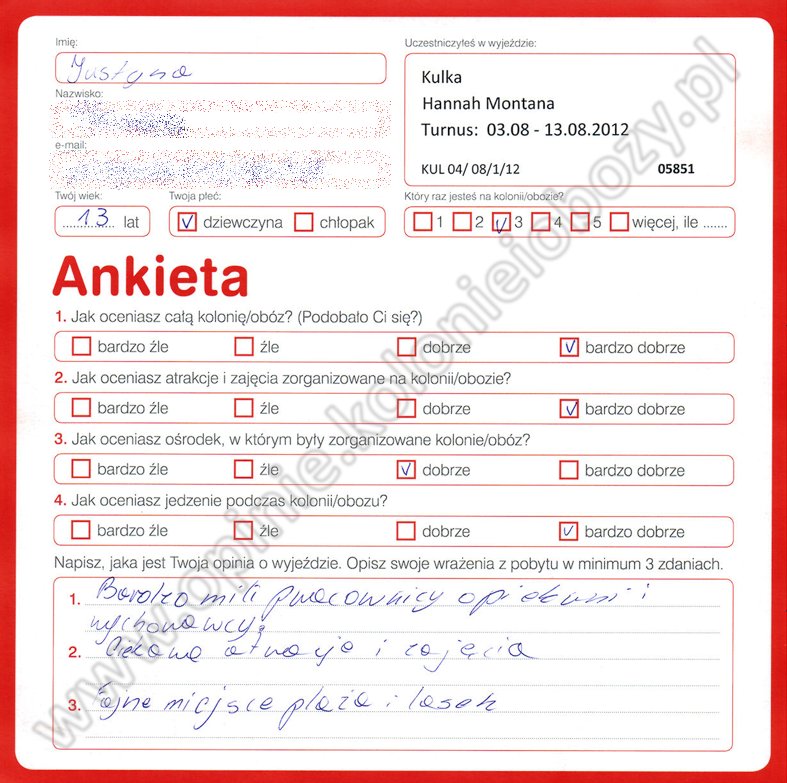 Imię:
Justyna
Uczestniczyłeś w wyjeździe:
Kulka
Hannah Montana
Turnus: 03.08 - 13.08.2012
KUL 04/ 08/1/12 05851
Nazwisko:
e-mail:
Twój wiek:
13 lat
Twoja płeć:
dziewczyna chłopak
Który raz jesteś na kolonii/obozie?
1 2 3 4 5 więcej, ile .......
Ankieta
1. Jak oceniasz całą kolonię/obóz? (Podobało Ci się?)
bardzo źle źle dobrze bardzo dobrze
2. Jak oceniasz atrakcje i zajęcia zorganizowane na kolonii/obozie?
bardzo źle źle dobrze bardzo dobrze
3. Jak oceniasz ośrodek, w którym były zorganizowane kolonie/obóz?
bardzo źle źle dobrze bardzo dobrze
4. Jak oceniasz jedzenie podczas kolonii/obozu?
bardzo źle źle dobrze bardzo dobrze
Napisz, jaka jest Twoja opinia o wyjeździe. Opisz swoje wrażenia z pobytu w minimum 3 zdaniach.
1. Bardzo mili pracownicy opiekuni i
wychowawcy
2. Ciekawe atrakcje i zajęcia
3. Fajne miejsce plaża i lasek
www.opinie.kolonieiobozy.pl